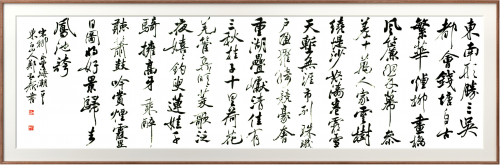 東南形勝三吳
都會錢塘自古
繁華煙柳畫橋
風簾翠幕參
差十萬人家雲樹
繞堤沙怒濤卷霜雪
天塹無涯市列珠璣
戶盈羅綺競豪奢
重湖疊巘清佳有
三秋桂子十里荷花
羌管弄晴菱歌泛
夜嬉嬉釣叟蓮娃千
騎擁高牙乘醉
聽簫鼓吟賞煙霞異
日圖將好景歸去
鳳池誇
宋柳永望海潮
書